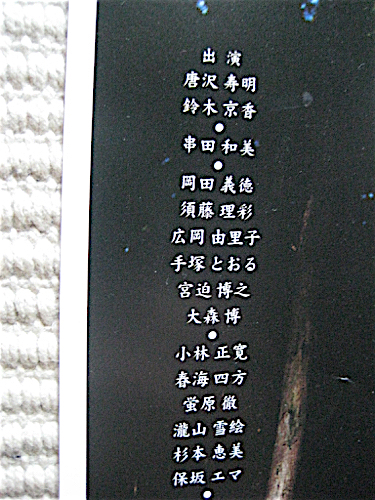 出演
唐沢 寿明
鈴木 京香
●
串田 和美
●
岡田 義徳
須藤 理彩
広岡 由里子
手塚 とおる
宮迫 博之
大森 博
●
小林 正寛
春海 四方
蛍原 徹
瀧山 雪絵
杉本 恵美
保坂 エマ
●